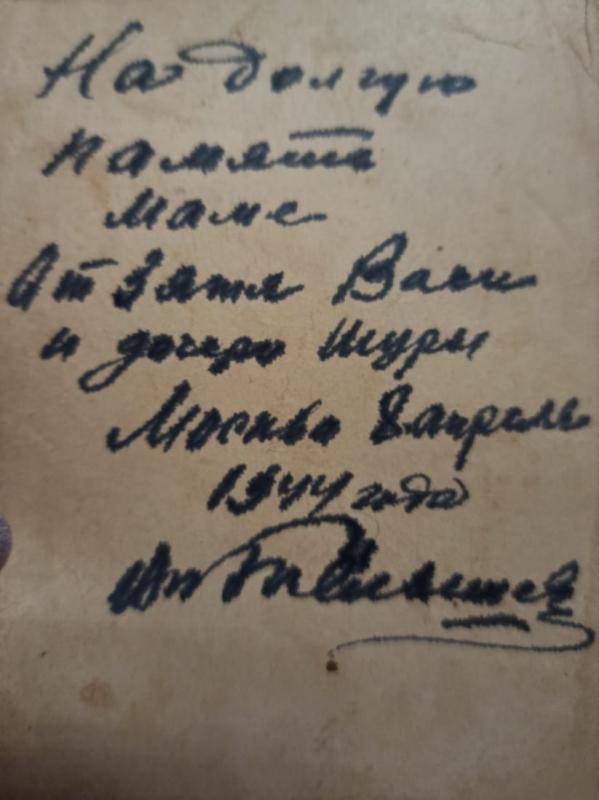 На долгую
память
маме
От зятя Вани
и дочери Шуры
Москва 8 апрель
1944 года